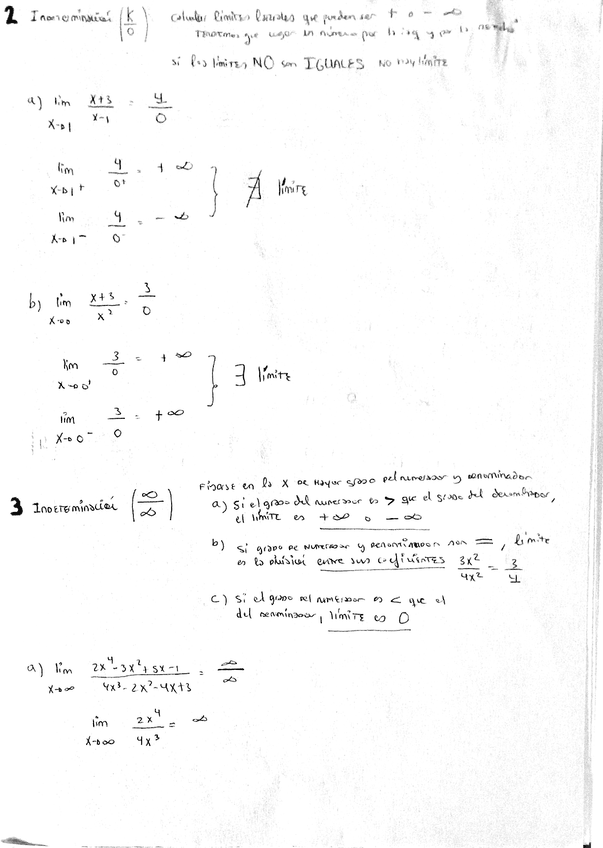 2 Indeterminación (K/0) calcular límites laterales que pueden ser + o - ∞
Tenemos que coger un número por la izq y por la
si los límites NO son IGUALES NO hay límite
a) lim x→1 (x+3)/(x-1) = 4/0
lim x→1+ 4/0+ = + ∞
∄ límite
lim x→1- 4/0- = - ∞
b) lim x→0 (x+3)/x² = 3/0
lim x→0+ 3/0 = + ∞
∃ límite
lim x→0- 3/0 = + ∞
3 Indeterminación (∞/∞)
Fijarse en la X de mayor grado del numerador y denominador
a) Si el grado del numerador es > que el grado del denominador,
el límite es + ∞ o - ∞
b) Si grado de numerador y denominador son =, límite
es la división entre sus coeficientes 3x²/4x² = 3/4
c) Si el grado del numerador es < que el
del denominador, límite es 0
a) lim x→∞ (2x⁴-3x²+5x-1)/(4x³-2x²-4x+3) = ∞/∞
lim x→∞ 2x⁴/4x³ = ∞